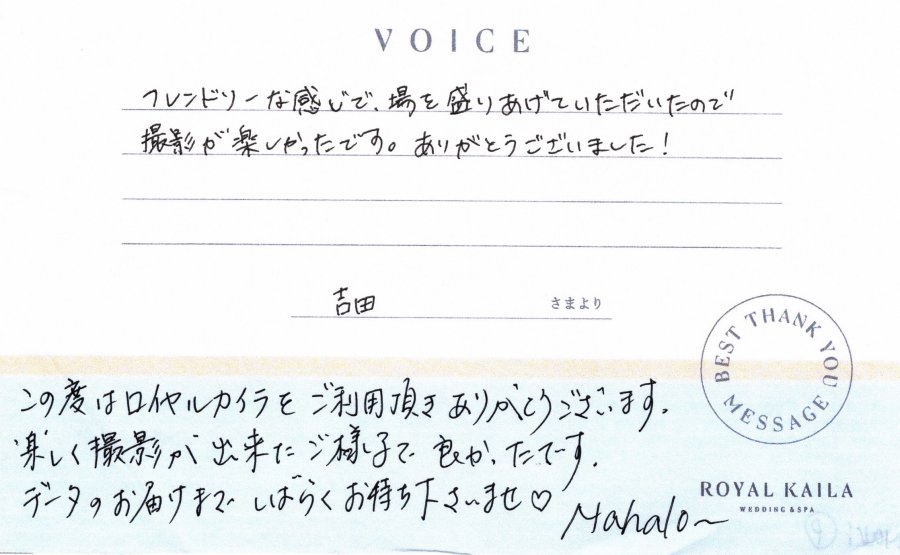 VOICE
フレンドリーな感じで、場を盛りあげていただいたので
撮影が楽しかったです。ありがとうございました！
吉田 さまより
BEST THANK YOU
MESSAGE
この度はロイヤルカイラをご利用頂きありがとうございます。
楽しく撮影が出来たご様子で良かったです。
データのお届けまで しばらくお待ち下さいませ♡
Mahalo～
ROYAL KAILA
WEDDING & SPA